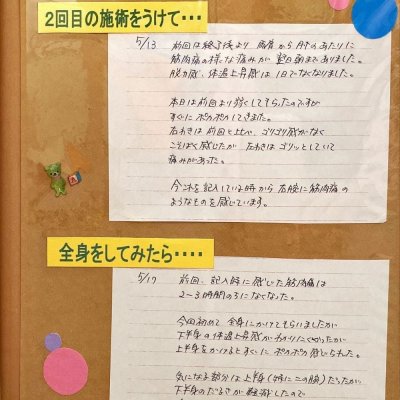 2回目の施術をうけて・・・
5/13 前回は終了後より 肩首から肘のあたりに
筋肉痛の様な痛みが 翌日朝までありました。
脱力感、体温上昇感は 1日でなくなりました。
本日は前回より強くしてもらったのですが
すぐに ポカポカしてきました。
右わきは 前回と比べ、ゴリゴリ感がなく
こそばく感じたが 左わきは ゴリッとしていて
痛みがあった。
今これを記入している時から 右腕に筋肉痛の
ようなものを感じています。
全身をしてみたら・・・・
5/17 前回、記入時に感じた筋肉痛は
2〜3時間のうちになくなった。
今回初めて 全身にかけてもらいましたが
下半身の体温上昇感がわかりにくかったが
上半身をかけるとすぐに ポカポカ感じられた。
気になる部分は上半身(特に二の腕)だったが
下半身のだるさが軽減したので